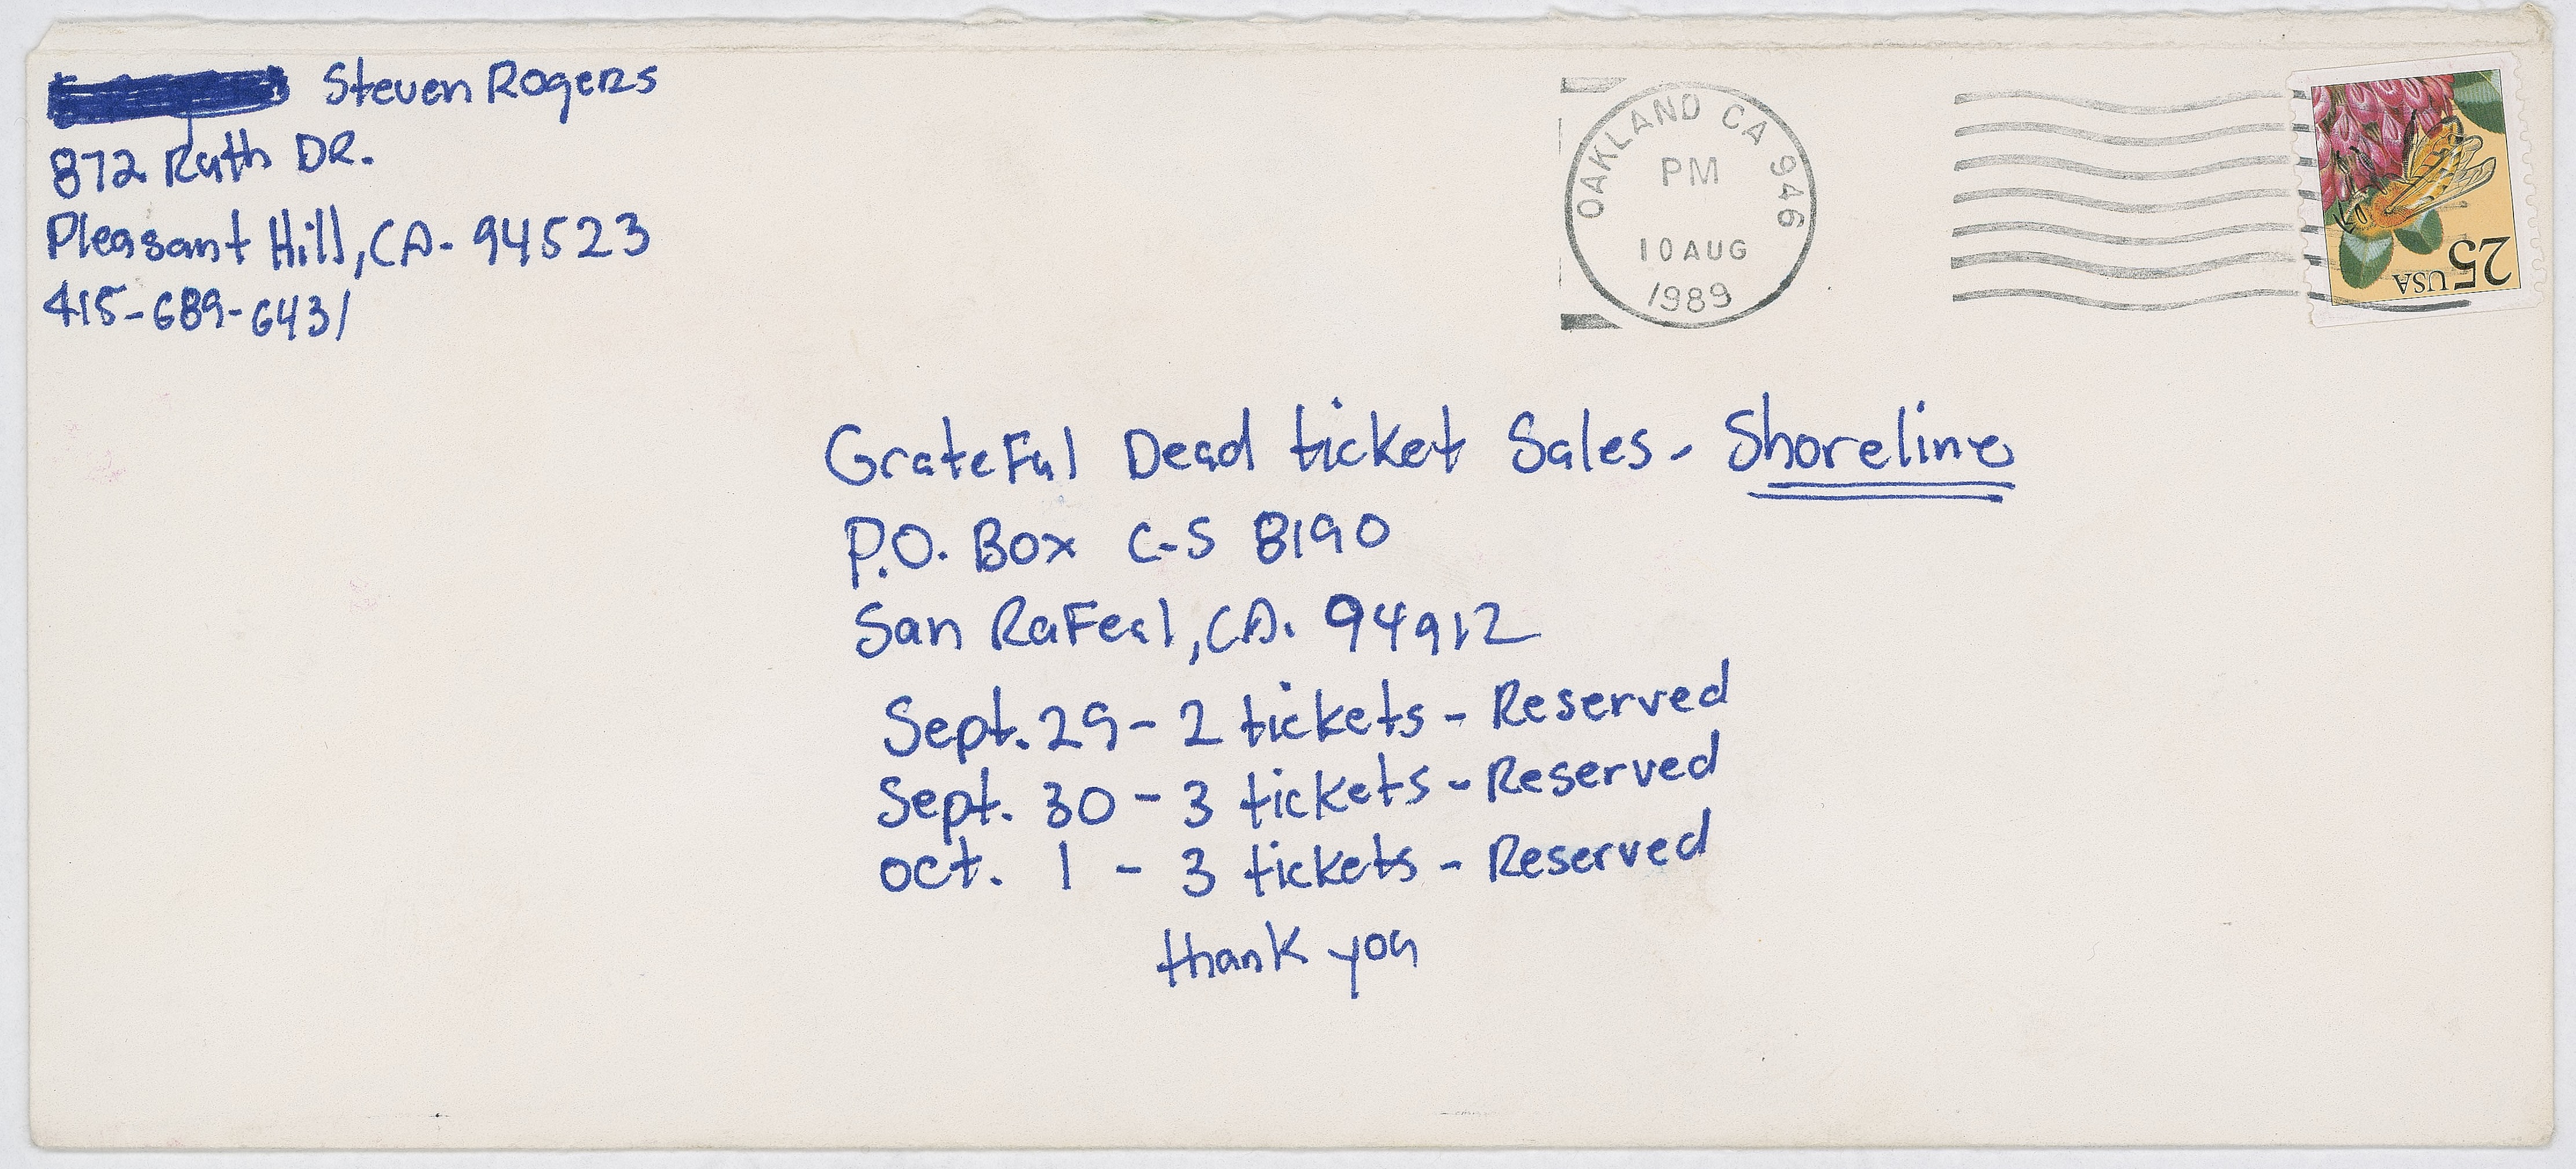 Steven Rogers
872 Ruth DR.
Pleasant Hill, CA- 94523
415-689-6431
OAKLAND CA 946
PM
10 AUG
1989
25 USA
GrateFul Dead ticket Sales - Shoreline
P.O. Box C-S 8190
San RaFeal, CA. 94912
Sept. 29 - 2 tickets - Reserved
Sept. 30 - 3 tickets - Reserved
oct. 1 - 3 tickets - Reserved
thank you